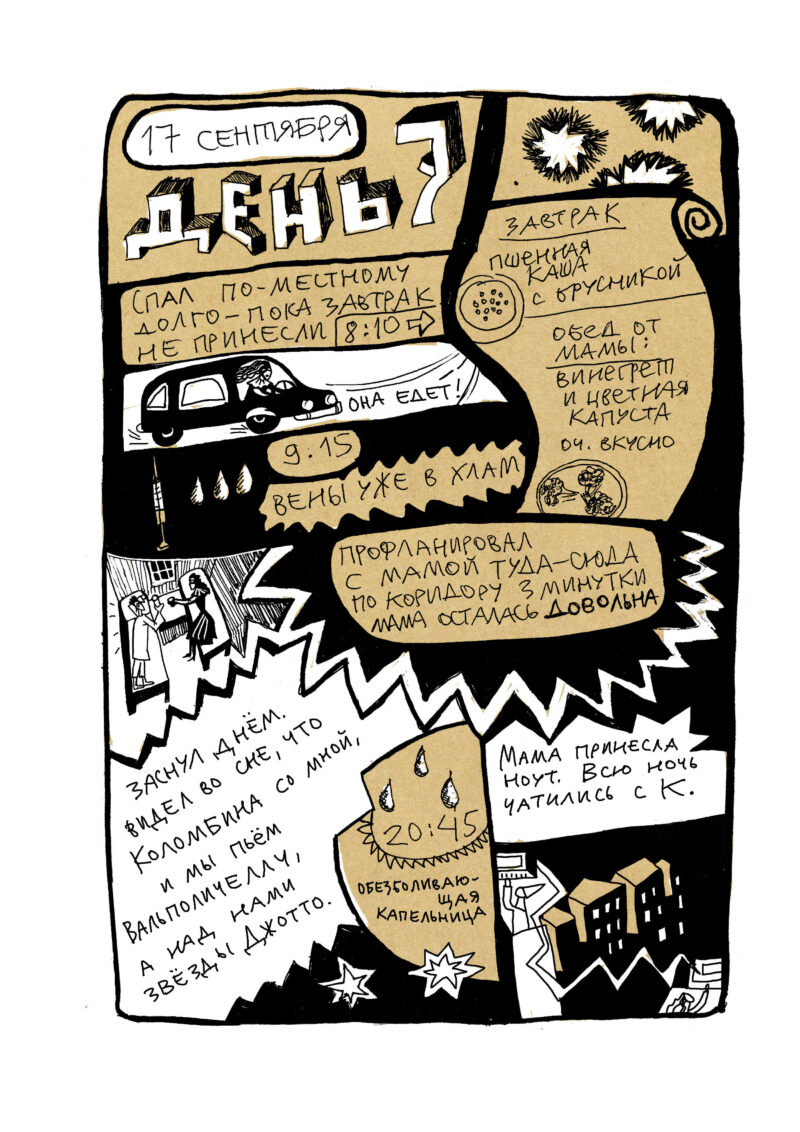 17 СЕНТЯБРЯ
ДЕНЬ 7
СПАЛ ПО-МЕСТНОМУ
ДОЛГО-ПОКА ЗАВТРАК
НЕ ПРИНЕСЛИ 8:10
ЗАВТРАК
ПШЕННАЯ
КАША
С БРУСНИКОЙ
ОБЕД ОТ
МАМЫ:
ВИНЕГРЕТ
И ЦВЕТНАЯ
КАПУСТА
ОЧ. ВКУСНО
ОНА ЕДЕТ!
9.15
ВЕНЫ УЖЕ В ХЛАМ
ПРОФЛАНИРОВАЛ
С МАМОЙ ТУДА-СЮДА
ПО КОРИДОРУ 3 МИНУТКИ
МАМА ОСТАЛАСЬ ДОВОЛЬНА
ЗАСНУЛ ДНЁМ.
ВИДЕЛ ВО СНЕ, ЧТО
КОЛОМБИНА СО МНОЙ,
И МЫ ПЬЁМ
ВАЛЬПОЛИЧЕЛЛУ,
А НАД НАМИ
ЗВЁЗДЫ ДЖОТТО.
20:45
ОБЕЗБОЛИВАЮ-
ЩАЯ
КАПЕЛЬНИЦА
МАМА ПРИНЕСЛА
НОУТ. ВСЮ НОЧЬ
ЧАТИЛИСЬ С К.